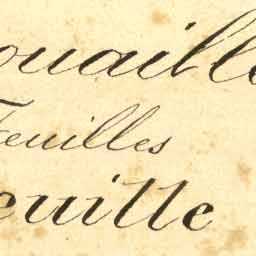 ouaill
Feuilles
euille